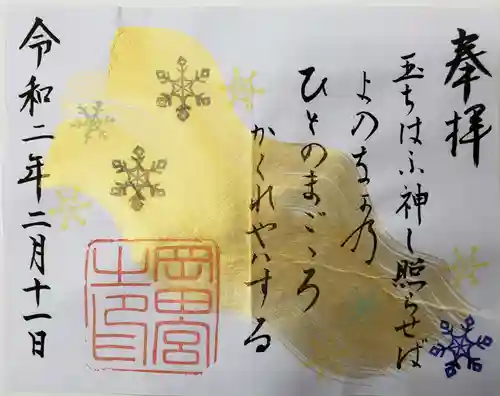 奉拝
玉ちはふ神し照らせば
よのなかの
ひとのまごゝろ
かくれやはする
令和二年二月十一日
岡田宮
之印